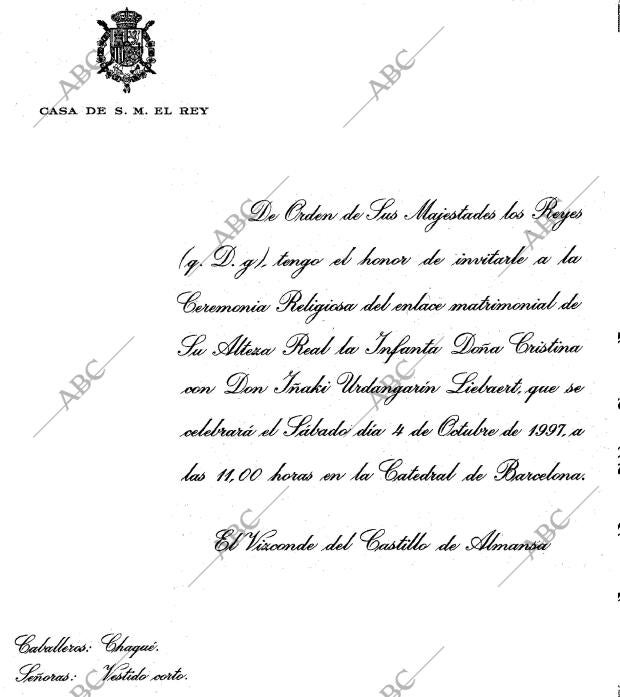 CASA DE S. M. EL REY
De Orden de Sus Majestades los Reyes
(q. D. g), tengo el honor de invitarle a la
Ceremonia Religiosa del enlace matrimonial de
Su Alteza Real la Infanta Doña Cristina
con Don Iñaki Urdangarín Liebaert, que se
celebrará el Sábado día 4 de Octubre de 1997, a
las 11,00 horas en la Catedral de Barcelona.
El Vizconde del Castillo de Almansa
Caballeros: Chaqué.
Señoras: Vestido corto.
ABC
ABC
ABC
ABC
ABC
ABC
ABC
ABC
ABC